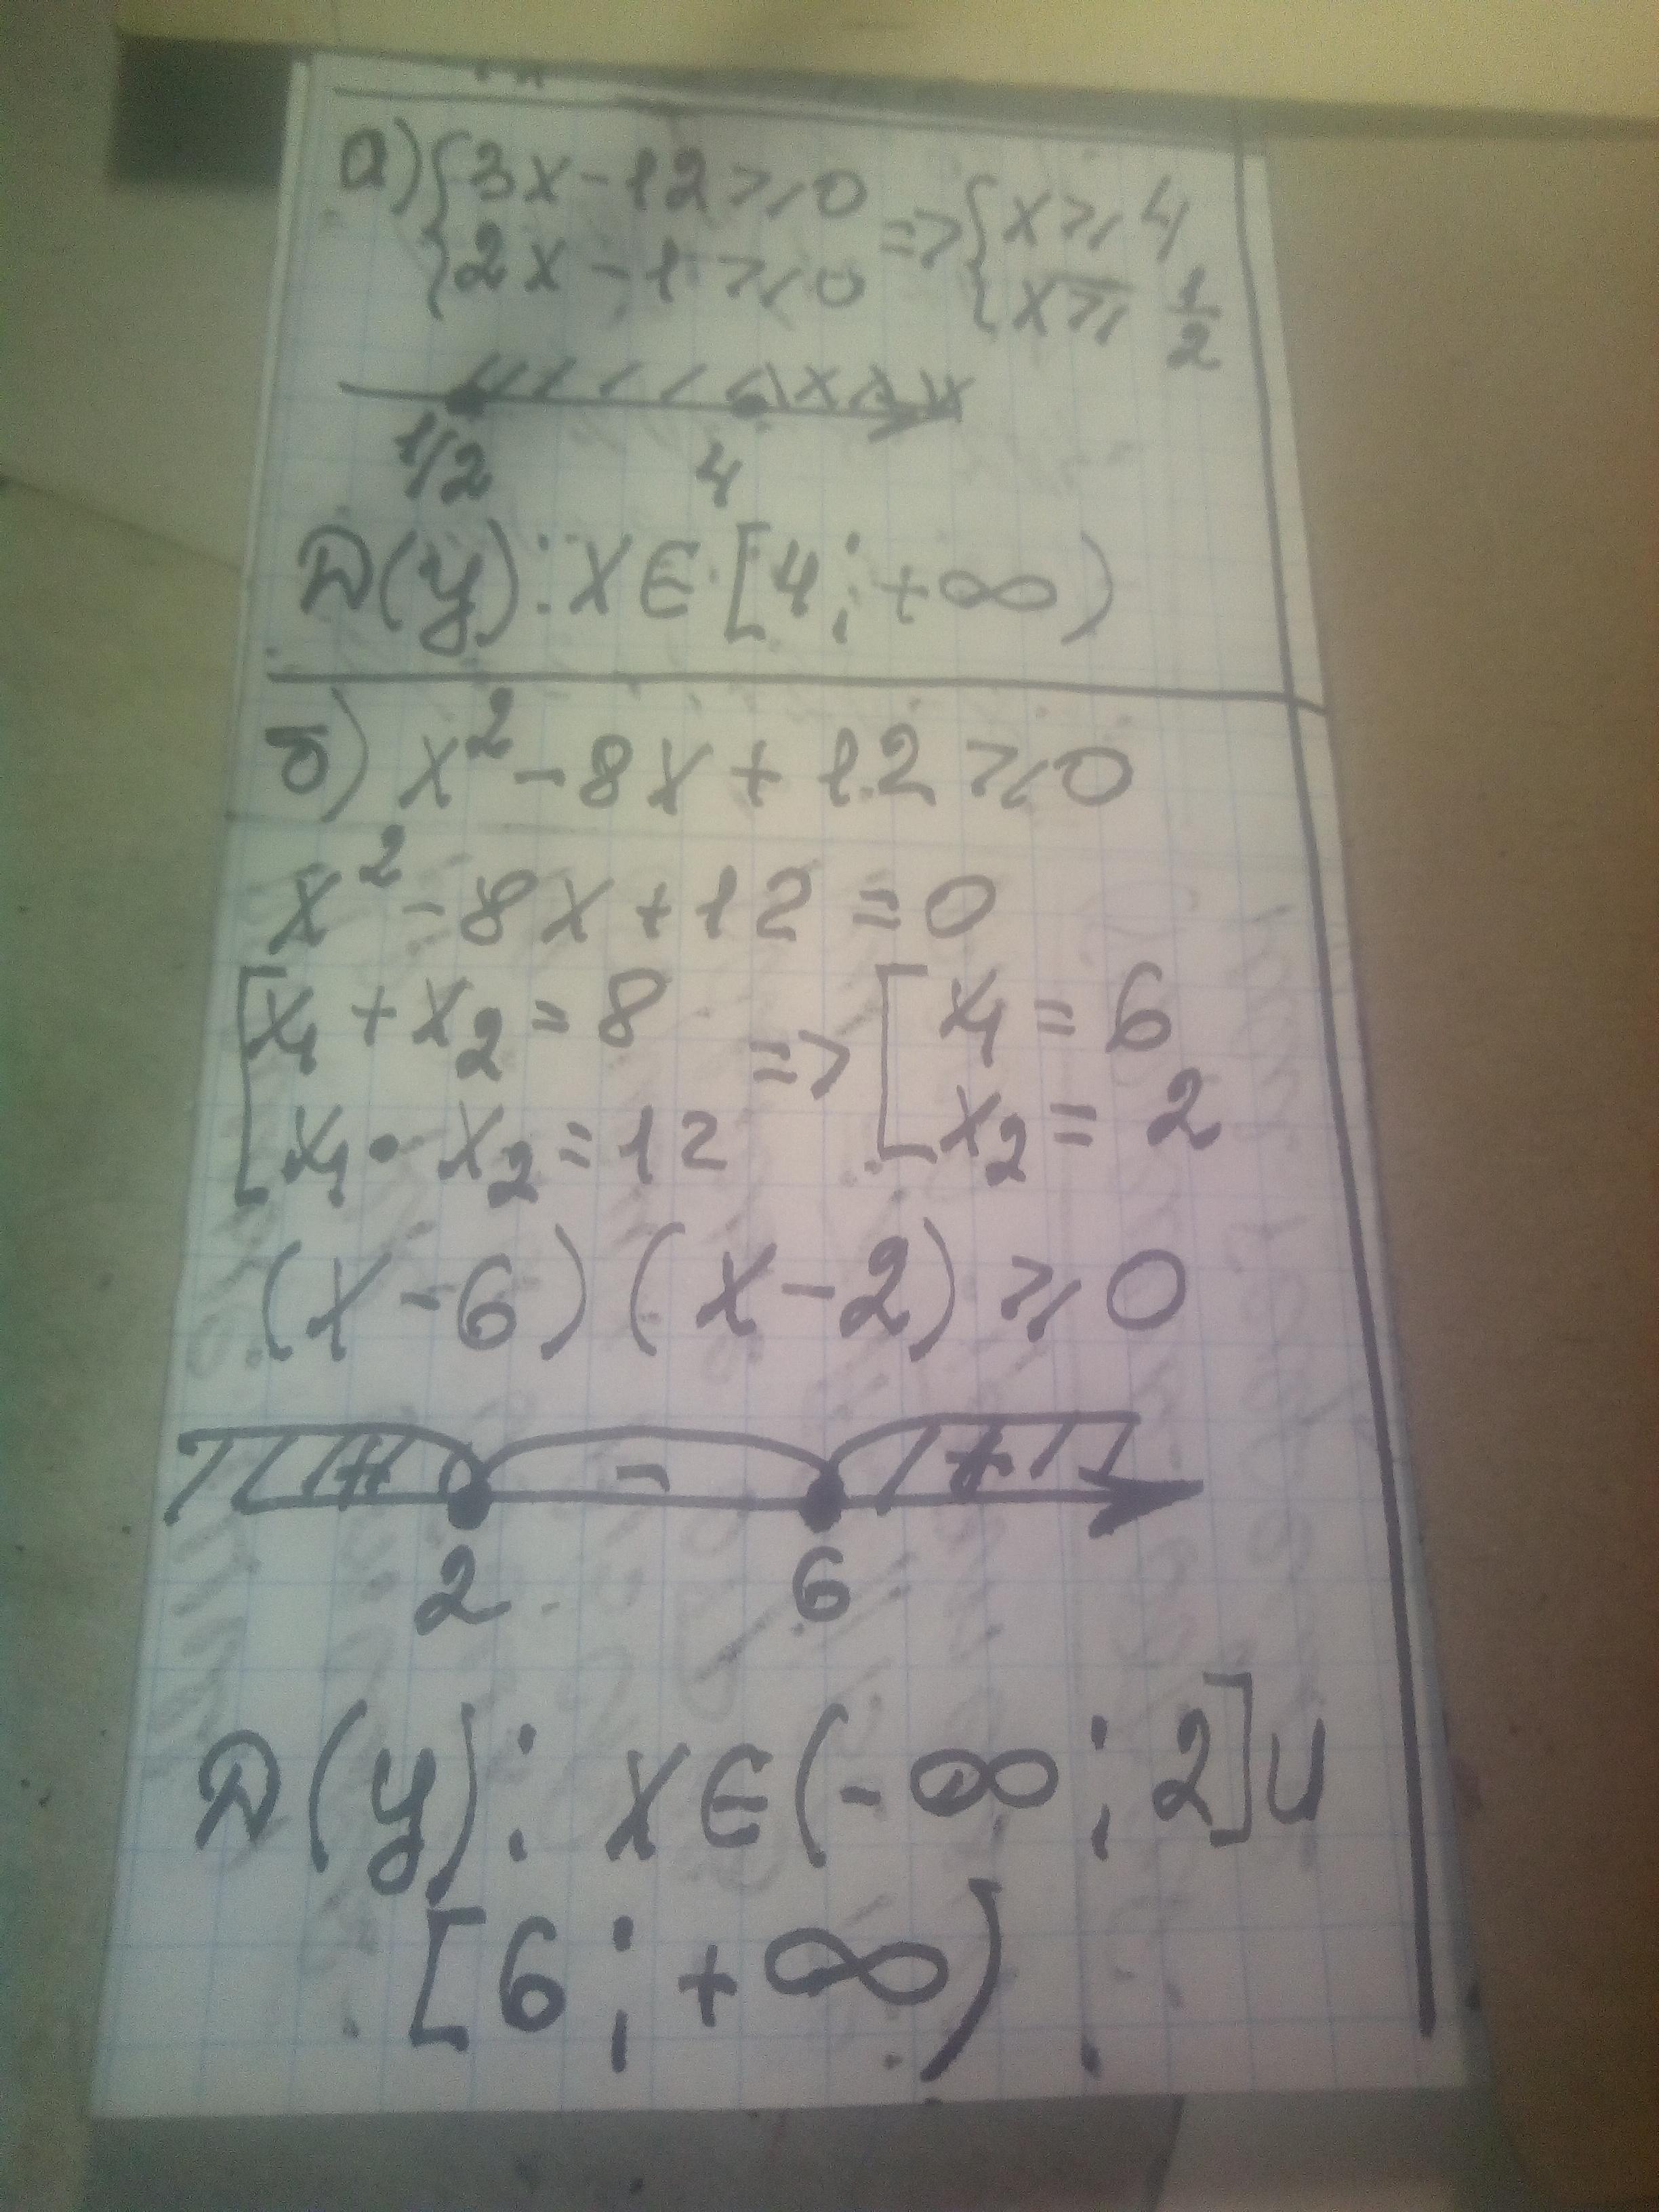 а) { 3x - 12 ⩾ 0 => { x ⩾ 4
{ 2x - 1 ⩾ 0 { x ⩾ 1/2
1/2 4
D(y): x ∈ [4; +∞)
б) x² - 8x + 12 ⩾ 0
x² - 8x + 12 = 0
[ x₁ + x₂ = 8 => [ x₁ = 6
[ x₁ • x₂ = 12 [ x₂ = 2
(x - 6)(x - 2) ⩾ 0
+ - +
2 6
D(y): x ∈ (-∞; 2] U
[6; +∞)